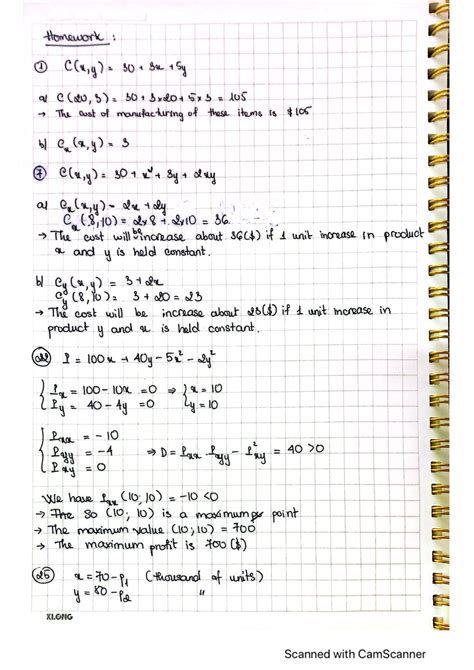 Homework :
① C(x,y) = 30 + 3x + 5y
a) C(20, 3) = 30 + 3×20 + 5×3 = 105
→ The cost of manufacturing of these items is $105
b) Cx(x,y) = 3
⑦ C(x,y) = 30 + x² + 3y + 2xy
a) Cx(x,y) = 2x + 2y
Cx(8,10) = 2×8 + 2×10 = 36
→ The cost will be increase about 36($) if 1 unit increase in product
x and y is held constant.
b) Cy(x,y) = 3 + 2x
Cy(8,10) = 3 + 20 = 23
→ The cost will be increase about 23($) if 1 unit increase in
product y and x is held constant.
P = 100x + 40y - 5x² - 2y²
{ Px = 100 - 10x = 0 ⇒ { x = 10
Py = 40 - 4y = 0 y = 10
{ Pxx = - 10
Pyy = -4 ⇒ D = Pxx Pyy - P²xy = 40 > 0
Pxy = 0
We have Pxx (10; 10) = -10 < 0
→ The So (10; 10) is a maximum point
→ The maximum value (10; 10) = 700
→ The maximum profit is 700 ($)
㉕ x = 70 - p1 (thousand of units)
y = 80 - p2 "
KLONG
Scanned with CamScanner